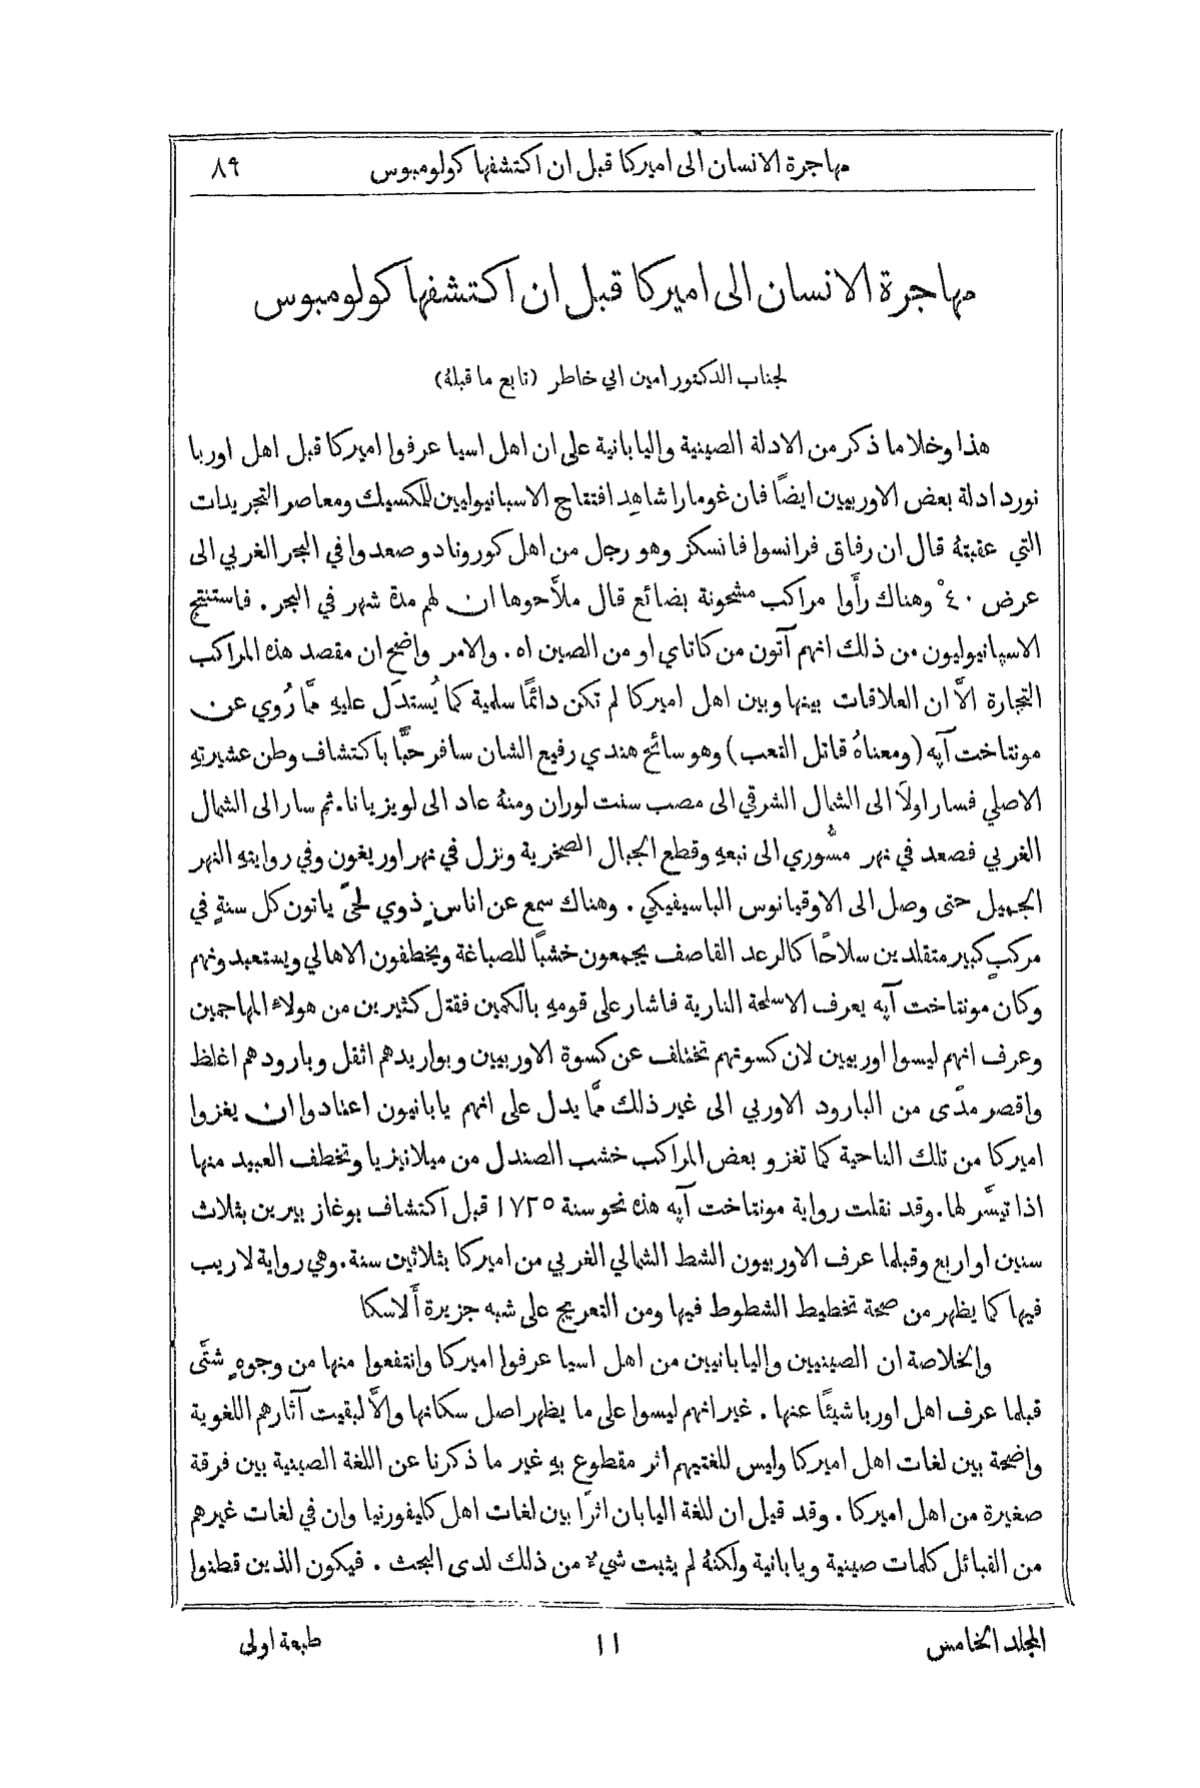 مهاجرة الانسان الى اميركا قبل ان اكتشفها كولومبوس ٨٩
مهاجرة الانسان الى اميركا قبل ان اكتشفها كولومبوس
لجناب الدكتور امين ابي خاطر (تابع ما قبلهُ)
هذا وخلا ما ذكر من الادلة الصينية واليابانية على ان اهل اسيا عرفوا اميركا قبل اهل اوربا
نورد ادلة بعض الاوربيين ايضًا فان غومارا شاهِد افتتاح الاسبانيوليين للمكسيك ومعاصر التجريدات
التي عقبتهُ قال ان رفاق فرانسوا فانسكز وهو رجل من اهل كورونادو صعدوا في البحر الغربي الى
عرض ٤٠° وهناك رأَوا مراكب مشحونة بضائع قال ملاَّحوها ان لهم مدة شهر في البحر. فاستنتج
الاسپانيوليون من ذلك انهم آتون من كاتاي او من الصين اه. والامر واضح ان مقصد هذه المراكب
التجارة الاَّ ان العلاقات بينها وبين اهل اميركا لم تكن دائمًا سلمية كما يُستدَل عليهِ ممَّا رُوي عن
مونتاخت آپه (ومعناهُ قاتل التعب) وهو سائح هندي رفيع الشان سافر حبًّا باكتشاف وطن عشيرتهِ
الاصلي فسار اولاً الى الشمال الشرقي الى مصب سنت لوران ومنهُ عاد الى لويزيانا. ثم سار الى الشمال
الغربي فصعد في نهر مسُّوري الى نبعهِ وقطع الجبال الصخرية ونزل في نهر اوريغون وفي روايتهِ النهر
الجميل حتى وصل الى الاوقيانوس الباسيفيكي. وهناك سمع عن اناسٍ ذوي لحىً ياتون كل سنةٍ في
مركبٍ كبير متقلدين سلاحًا كالرعد القاصف يجمعون خشبًا للصباغة ويخطفون الاهالي ويستعبدونهم
وكان مونتاخت آپه يعرف الاسلحة النارية فاشار على قومهِ بالكمين فقتل كثيرين من هولاءِ المهاجمين
وعرف انهم ليسوا اوربيين لان كسوتهم تختلف عن كسوة الاوربيين وبواريدهم اثقل وبارودهم اغلظ
واقصر مدًى من البارود الاوربي الى غير ذلك ممَّا يدل على انهم يابانيون اعتادوا ان يغزوا
اميركا من تلك الناحية كما تغزو بعض المراكب خشب الصندل من ميلانيزيا وتخطف العبيد منها
اذا تيسَّر لها. وقد نقلت رواية مونتاخت آپه هذه نحو سنة ١٧٢٥ قبل اكتشاف بوغاز بيرين بثلاث
سنين او اربع وقبلما عرف الاوربيون الشط الشمالي الغربي من اميركا بثلاثين سنة. وهي رواية لا ريب
فيها كما يظهر من صحة تخطيط الشطوط فيها ومن التعريج على شبه جزيرة أَلاسكا
والخلاصة ان الصينيين واليابانيين من اهل اسيا عرفوا اميركا وانتفعوا منها من وجوهٍ شتَّى
قبلما عرف اهل اوربا شيئًا عنها. غير انهم ليسوا على ما يظهر اصل سكانها والاَّ لبقيت آثارهم اللغوية
واضحة بين لغات اهل اميركا وليس للغتيهم اثر مقطوع بهِ غير ما ذكرنا عن اللغة الصينية بين فرقة
صغيرة من اهل اميركا. وقد قيل ان للغة اليابان اثرًا بين لغات اهل كليفورنيا وان في لغات غيرهم
من القبائل كلمات صينية ويابانية ولكنهُ لم يثبت شيءٌ من ذلك لدى البحث. فيكون الذين قطنوا
المجلد الخامس ١١ طبعة اولى